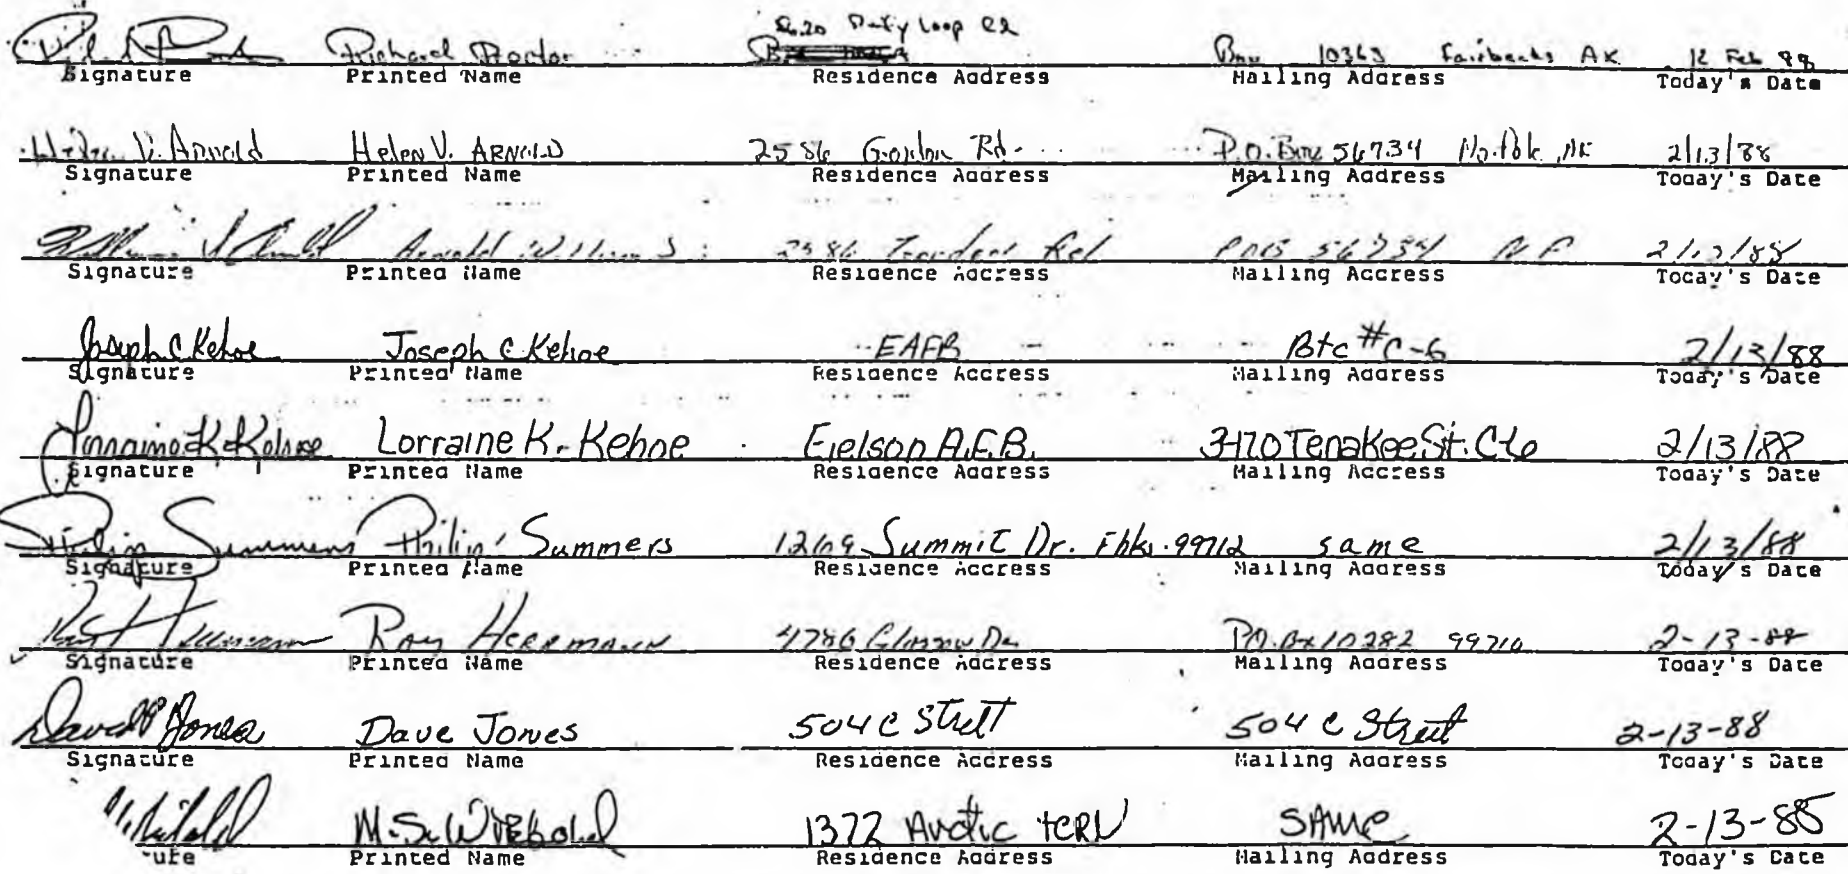 Richard Proctor Box 10363 Fairbanks AK 12 Feb 88
Signature Printed Name Residence Address Mailing Address Today's Date
Helen V. Arnold Helen V. ARNOLD 2586 Gordon Rd. P.O. Box 56734 No. Pole, AK 2/13/88
Signature Printed Name Residence Address Mailing Address Today's Date
Arnold William J. 2586 Rd POB 56734 N P 2/13/88
Signature Printed Name Residence Address Mailing Address Today's Date
Joseph C Kehoe Joseph C Kehoe EAFB Btc #C-6 2/13/88
Signature Printed Name Residence Address Mailing Address Today's Date
Lorraine K Kehoe Lorraine K. Kehoe Eielson A.F.B. 3470 Tenakee St. C6 2/13/88
Signature Printed Name Residence Address Mailing Address Today's Date
Philip Summers Philip Summers 1269 Summit Dr. Fbks. 99712 same 2/13/88
Signature Printed Name Residence Address Mailing Address Today's Date
Ray Herrmann Ray Herrmann 4786 Dr P.O. Bx 10282 99710 2-13-88
Signature Printed Name Residence Address Mailing Address Today's Date
David Jones Dave Jones 504 C Street 504 C Street 2-13-88
Signature Printed Name Residence Address Mailing Address Today's Date
M.S. Wiebold 1372 Arctic tern SAME 2-13-88
ure Printed Name Residence Address Mailing Address Today's Date